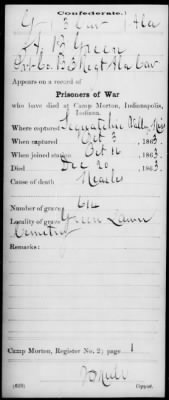 Confederate.
G | 3 Cav | Ala
Green
Pvt Co. B 3 Regt Ala Cav
Appears on a record of
Prisoners of War
who have died at Camp Morton, Indianapolis,
Indiana.
Where captured Sequatchie Valley,
When captured Oct 3, 1863.
When joined station Oct 16, 1863.
Died Dec 20, 1863.
Cause of death Measles
Number of grave
Locality of grave Green Lawn
Cemetery
Remarks:
Camp Morton, Register No. 2; page 1
Copyist.